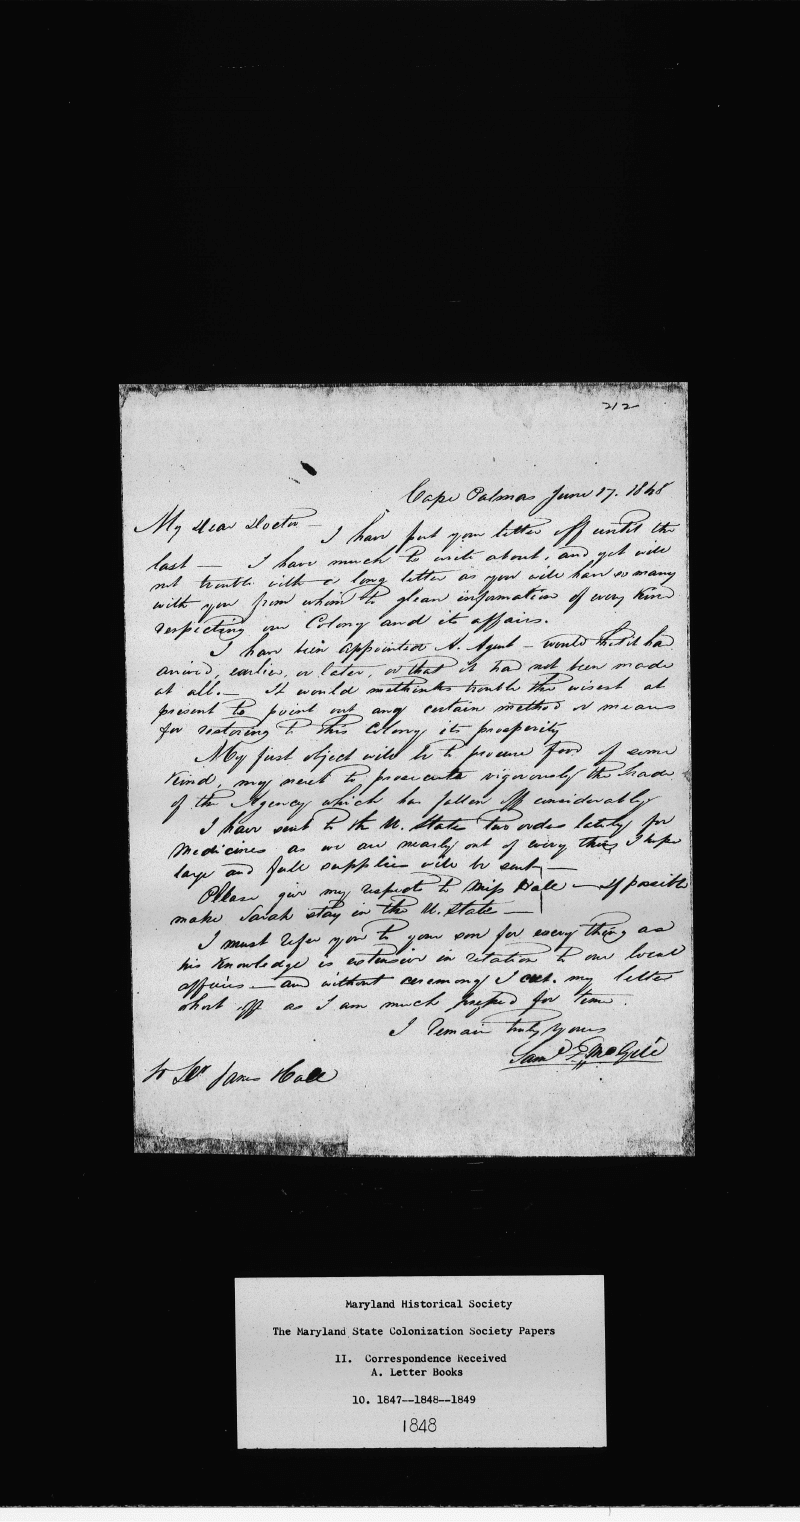 212
Cape Palmas June 17. 1848
My Dear Doctor —
I have put your letter off until the
last — I have much to write about, and yet will
not trouble with a long letter as you will have so many
with you from whom to glean information of every kind
respecting our Colony and its affairs.
I have been appointed A. Agent — would that it had
arrived, earlier, or later, or that it had not been made
at all. — It would methinks trouble the wisest at
present to point out any certain method or means
for restoring to this Colony its prosperity
My first object will be to procure food of some
kind, my next to prosecute vigorously the trade
of the Agency which has fallen off considerably
I have sent to the U. States two orders lately for
Medicines as we are nearly out of every thing I hope
large and full supplies will be sent —
Please give my respects to Miss Hall — If possible
make Sarah stay in the U. State —
I must refer you to your son for every thing as
his knowledge is extensive in relation to our local
affairs — and without ceremony I cut my letter
short off as I am much for time.
I remain truly yours
Saml. F. McGill
To Dr James Hall
Maryland Historical Society
The Maryland State Colonization Society Papers
II. Correspondence Received
A. Letter Books
10. 1847--1848--1849
1848